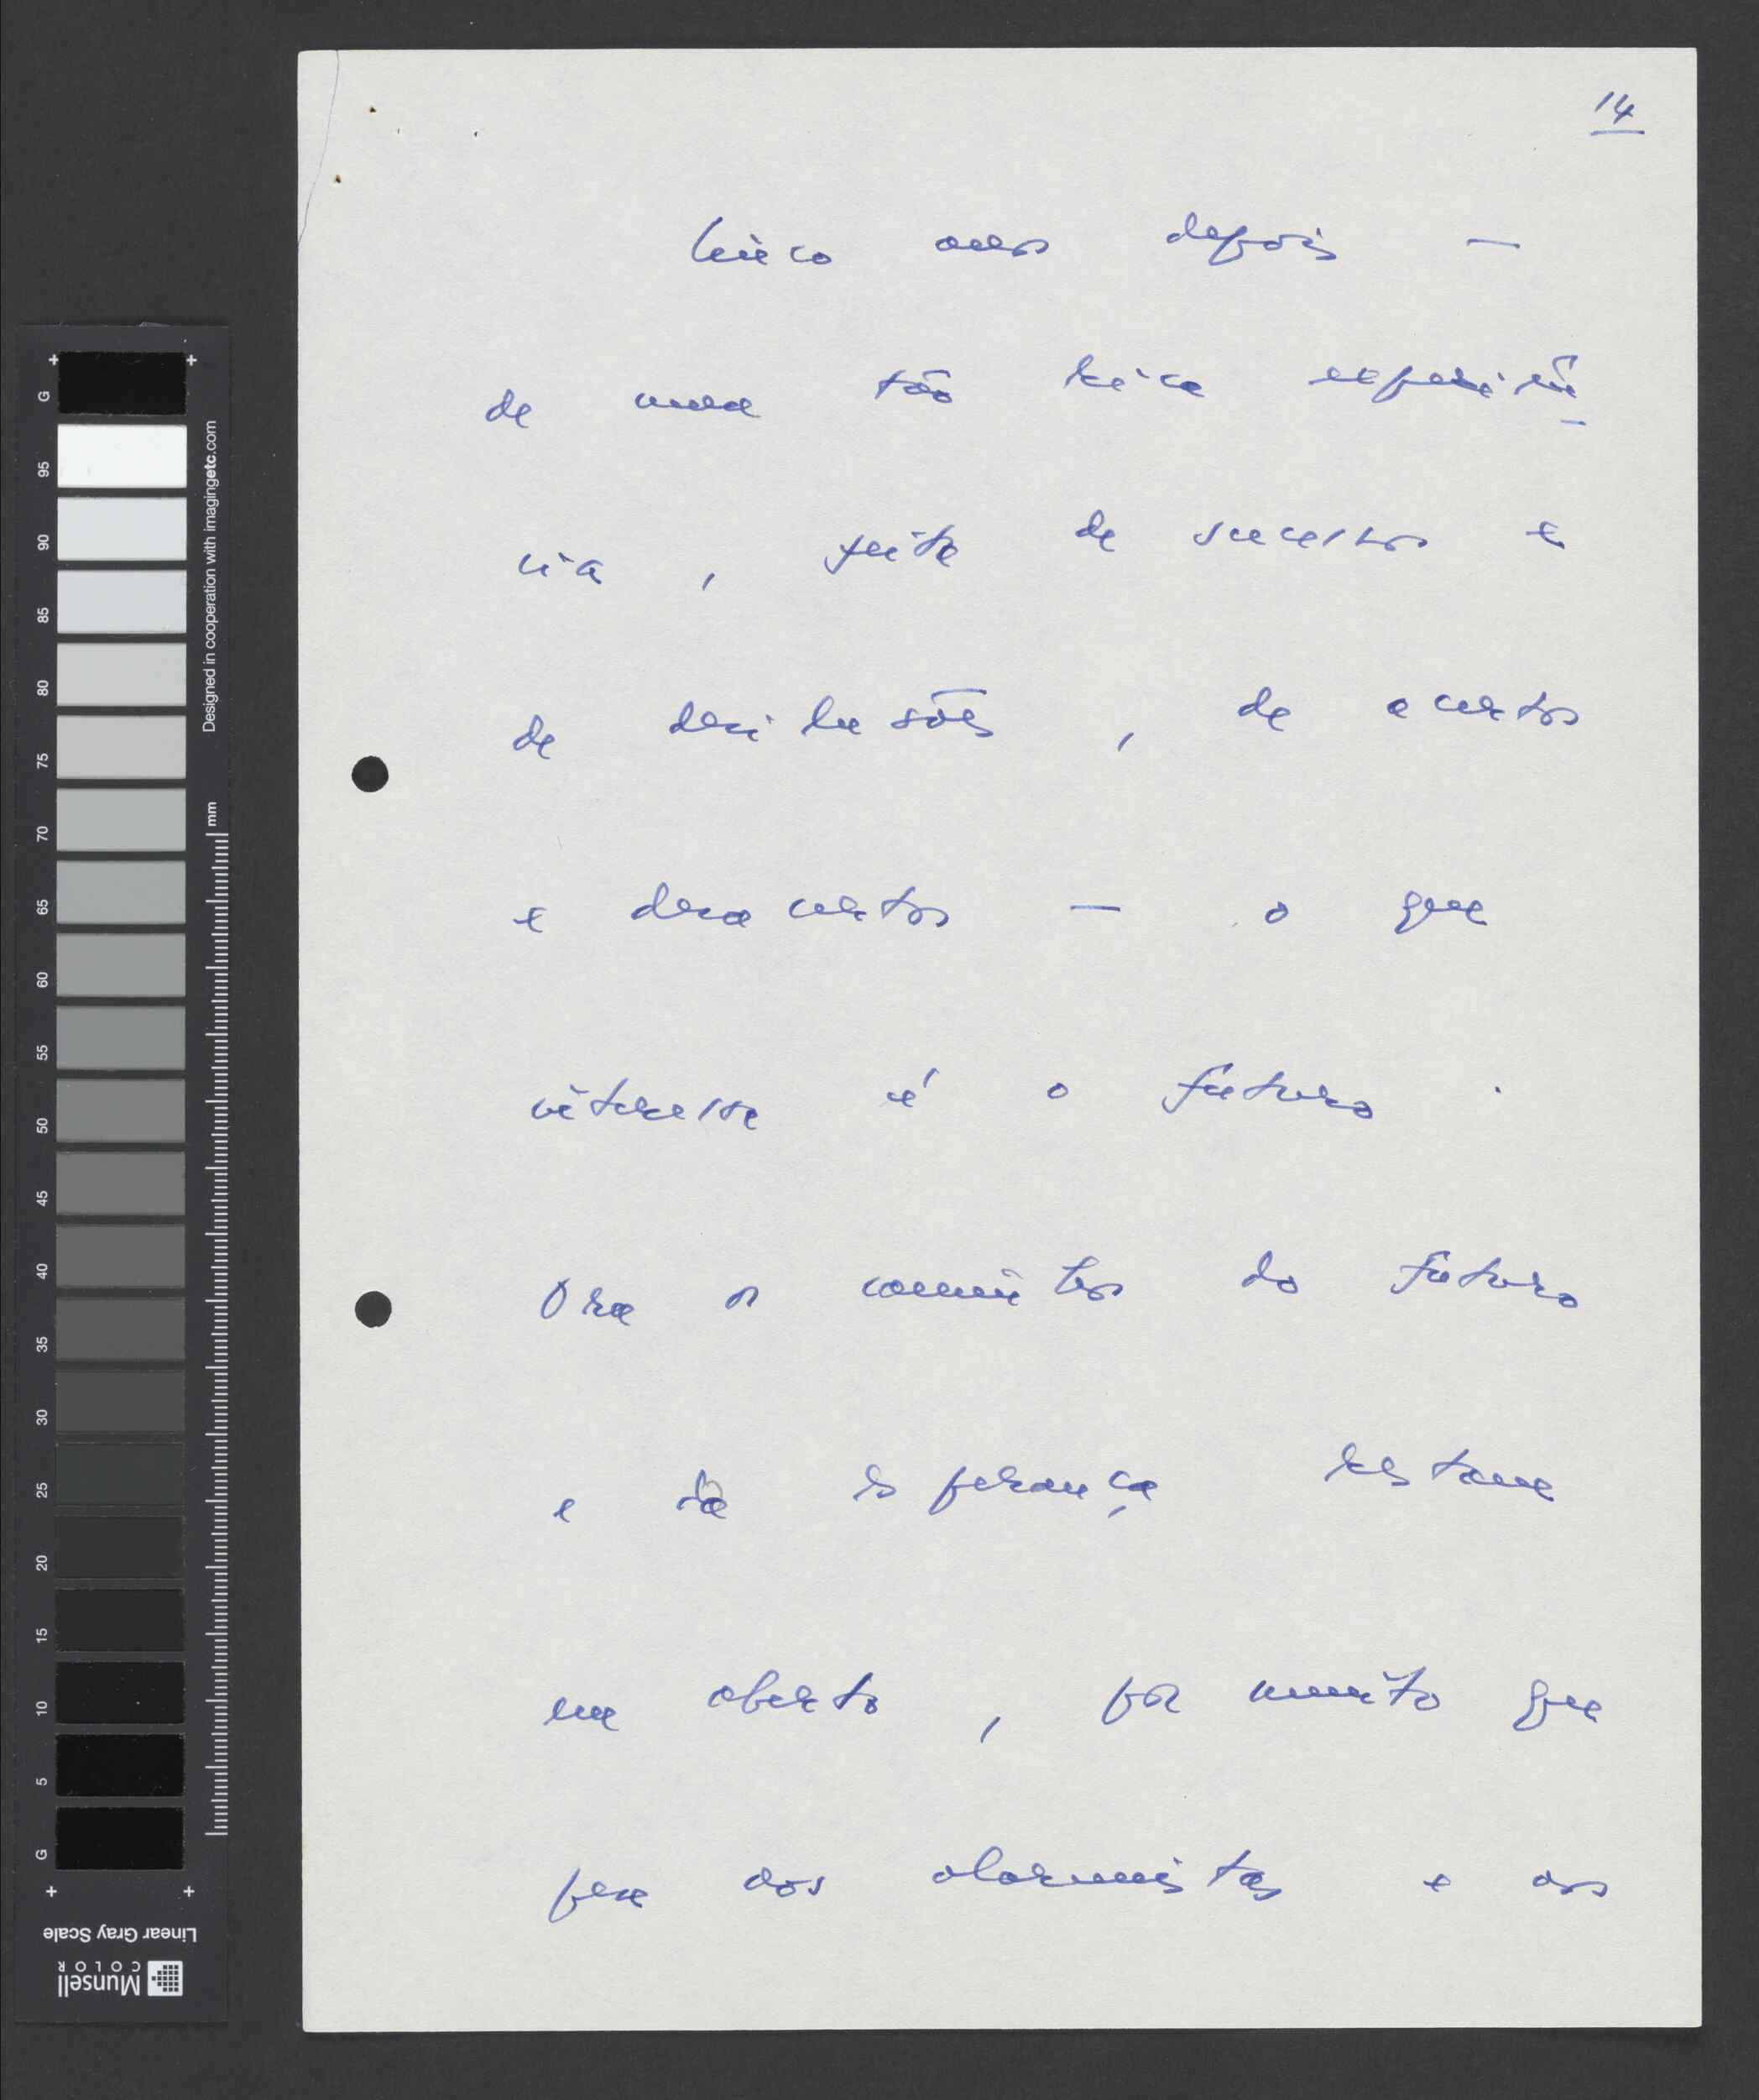 14
Cinco anos depois —
de uma tão rica experiên-
cia, feita de sucessos e
de desilusões, de acertos
e desacertos — o que
interessa é o futuro.
Ora os caminhos do futuro
e da esperança restam
em aberto, por muito que
pese aos alarmistas e aos
G 95 90 85 80 75 70 65 60 55 50 45 40 35 30 25 20 15 10 5 G
Designed in cooperation with imagingetc.com
mm
Linear Gray Scale
Munsell
COLOR